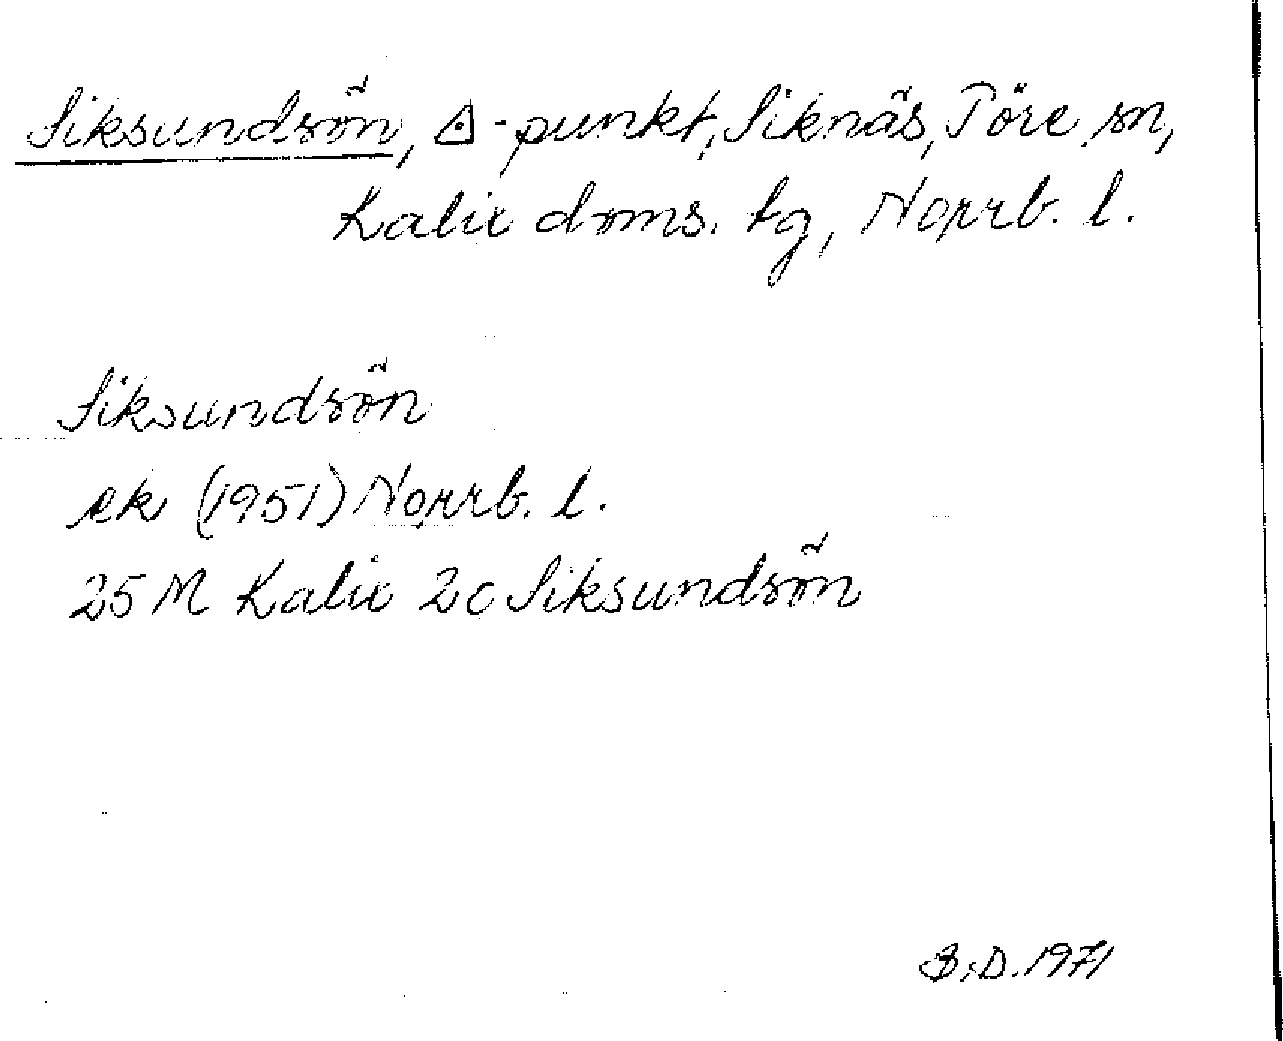 Siksundsön, ◬-punkt, Siknäs, Töre sn,
Kalix doms. tg, Norrb. l.
Siksundsön
ek (1951) Norrb. l.
25 M Kalix 2c Siksundsön
B.D. 1971